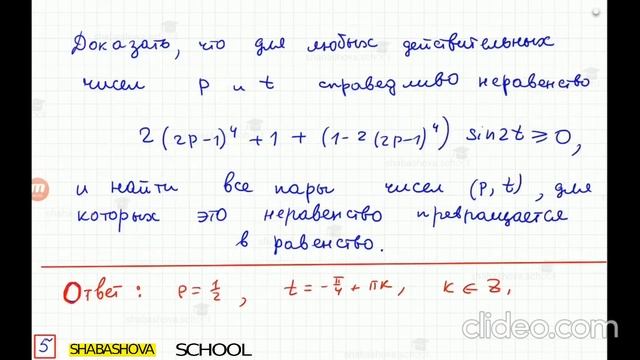 Доказать, что для любых действительных
чисел p и t справедливо неравенство
2(2p-1)⁴ + 1 + (1-2(2p-1)⁴) sin2t ≥ 0,
и найти все пары чисел (p, t), для
которых это неравенство превращается
в равенство.
Ответ: p = 1/2, t = -π/4 + πk, k ∈ Z.
5 SHABASHOVA SCHOOL
clideo.com